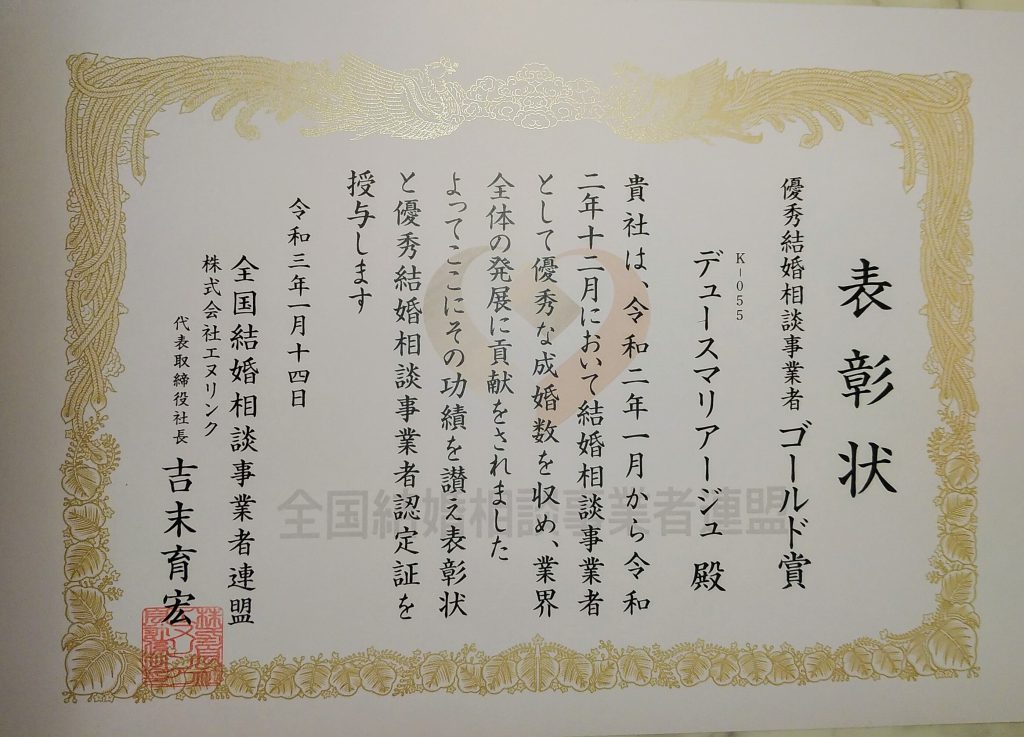 表彰状
優秀結婚相談事業者 ゴールド賞
K-055
デュースマリアージュ 殿
貴社は、令和二年一月から令和
二年十二月において結婚相談事業者
として優秀な成婚数を収め、業界
全体の発展に貢献をされました
よってここにその功績を讃え表彰状
と優秀結婚相談事業者認定証を
授与します
令和三年一月十四日
全国結婚相談事業者連盟
株式会社エヌリンク
代表取締役社長 吉末育宏
全国結婚相談事業者連盟